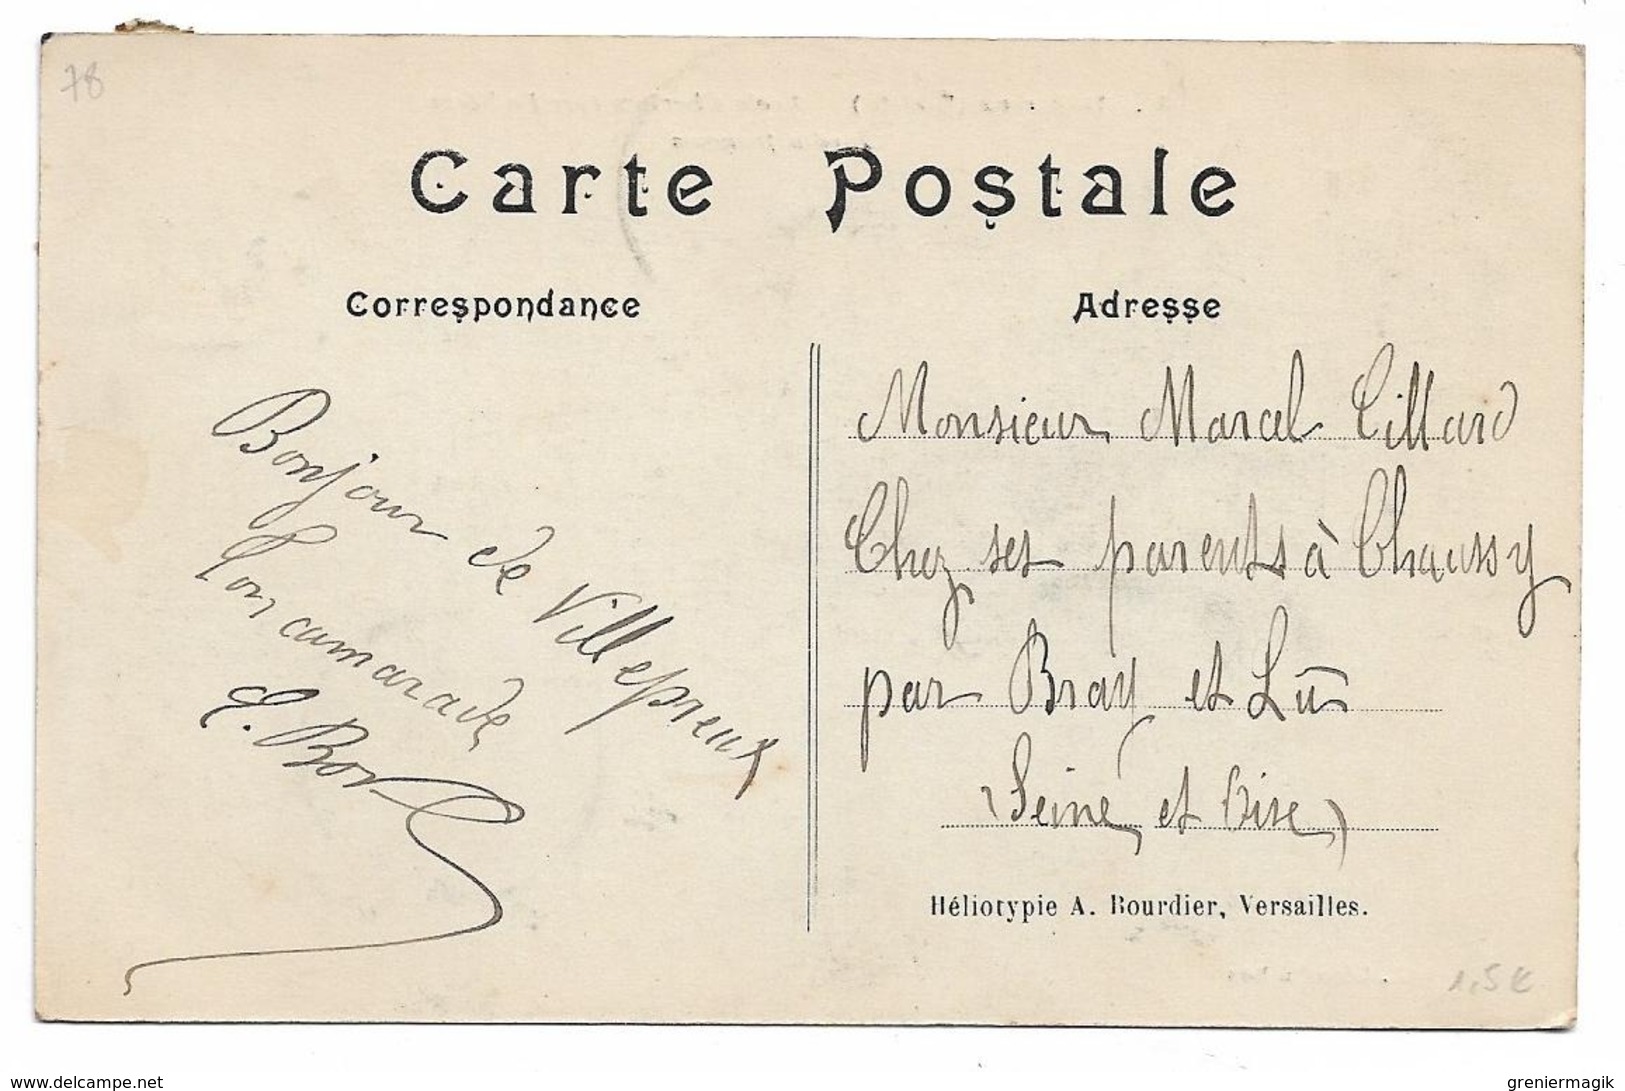 78
Carte Postale
Correspondance
Adresse
Bonjour de Villepreux
Ton camarade
Monsieur Marcel Tillard
Chez ses parents à Chaussy
par Bray et Lû
(Seine et Oise)
Héliotypie A. Bourdier, Versailles.
1,5€
www.delcampe.net
greniermagik